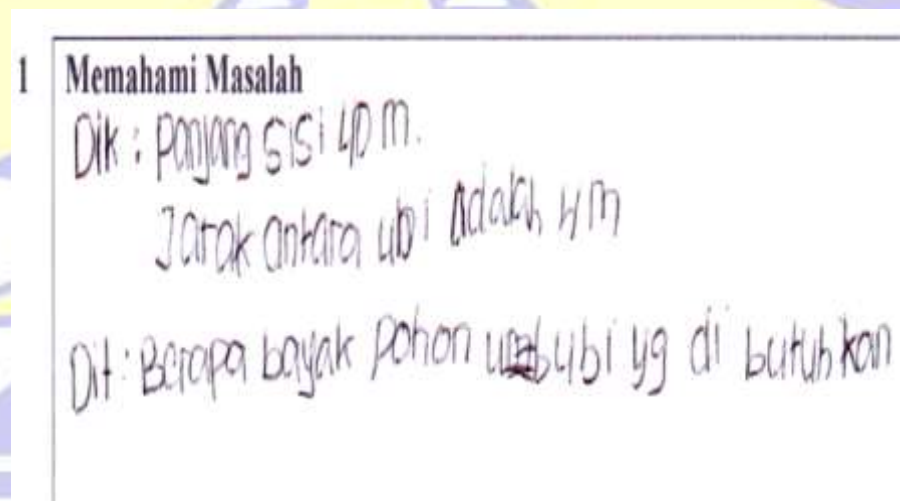 1 Memahami Masalah
Dik : Panjang sisi 40 m.
Jarak antara ubi Adalah 4 m
Dit : Berapa bayak Pohon ubi yg di butuhkan